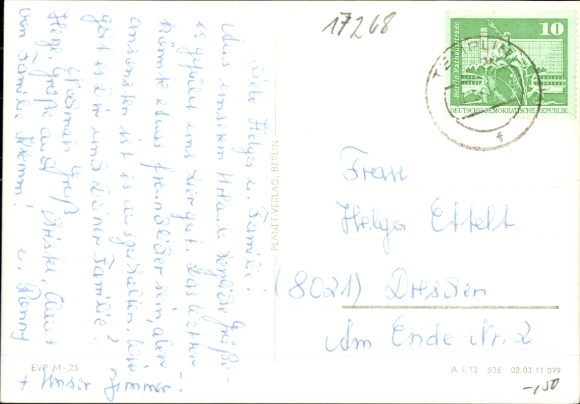 17268
Liebe Helga u. Familie!
Aus unserem Urlaub herzliche Grüße.
Es gefällt uns hier gut. Das Wetter
könnte etwas freundlicher sein, aber
ansonsten ist es auszuhalten. Wie
geht es Dir und Deiner Familie?
Nochmals Gruß
Herzl. Grüße auch Klaus
von Familie
u. Ronny
+ Unser Zimmer
PLANET-VERLAG, BERLIN
TEMPLIN
10
Berlin, Rathausstrasse
DEUTSCHE DEMOKRATISCHE REPUBLIK
Frau
Helga Ettelt
(8021) Dresden
Am Ende Nr. 2
EVP M -,25
A 1/73 605 02 03 11 099
-,50